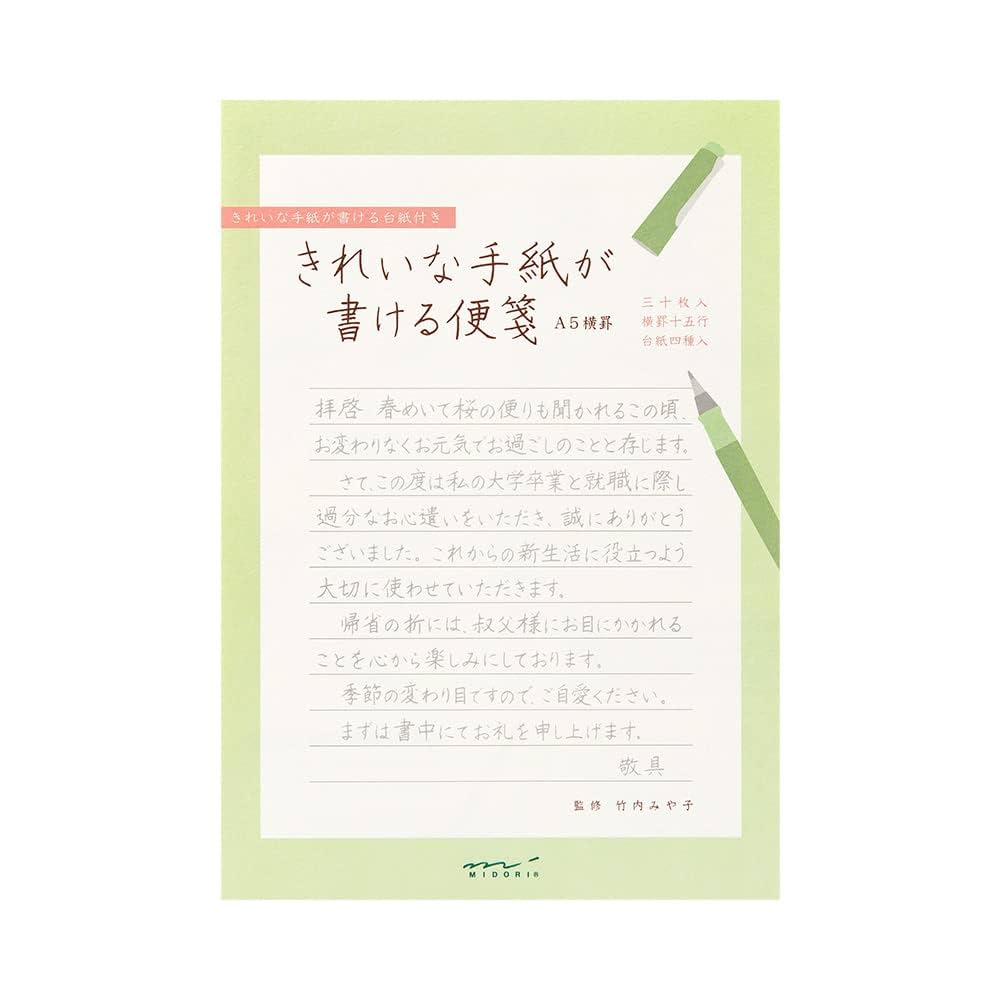 きれいな手紙が書ける台紙付き
きれいな手紙が
書ける便箋 A5横罫
三十枚入
横罫十五行
台紙四種入
拝啓 春めいて桜の便りも聞かれるこの頃、
お変わりなくお元気でお過ごしのことと存じます。
さて、この度は私の大学卒業と就職に際し
過分なお心遣いをいただき、誠にありがとう
ございました。これからの新生活に役立つよう
大切に使わせていただきます。
帰省の折には、叔父様にお目にかかれる
ことを心から楽しみにしております。
季節の変わり目ですので、ご自愛ください。
まずは書中にてお礼を申し上げます。
敬具
監修 竹内みや子
MIDORI®